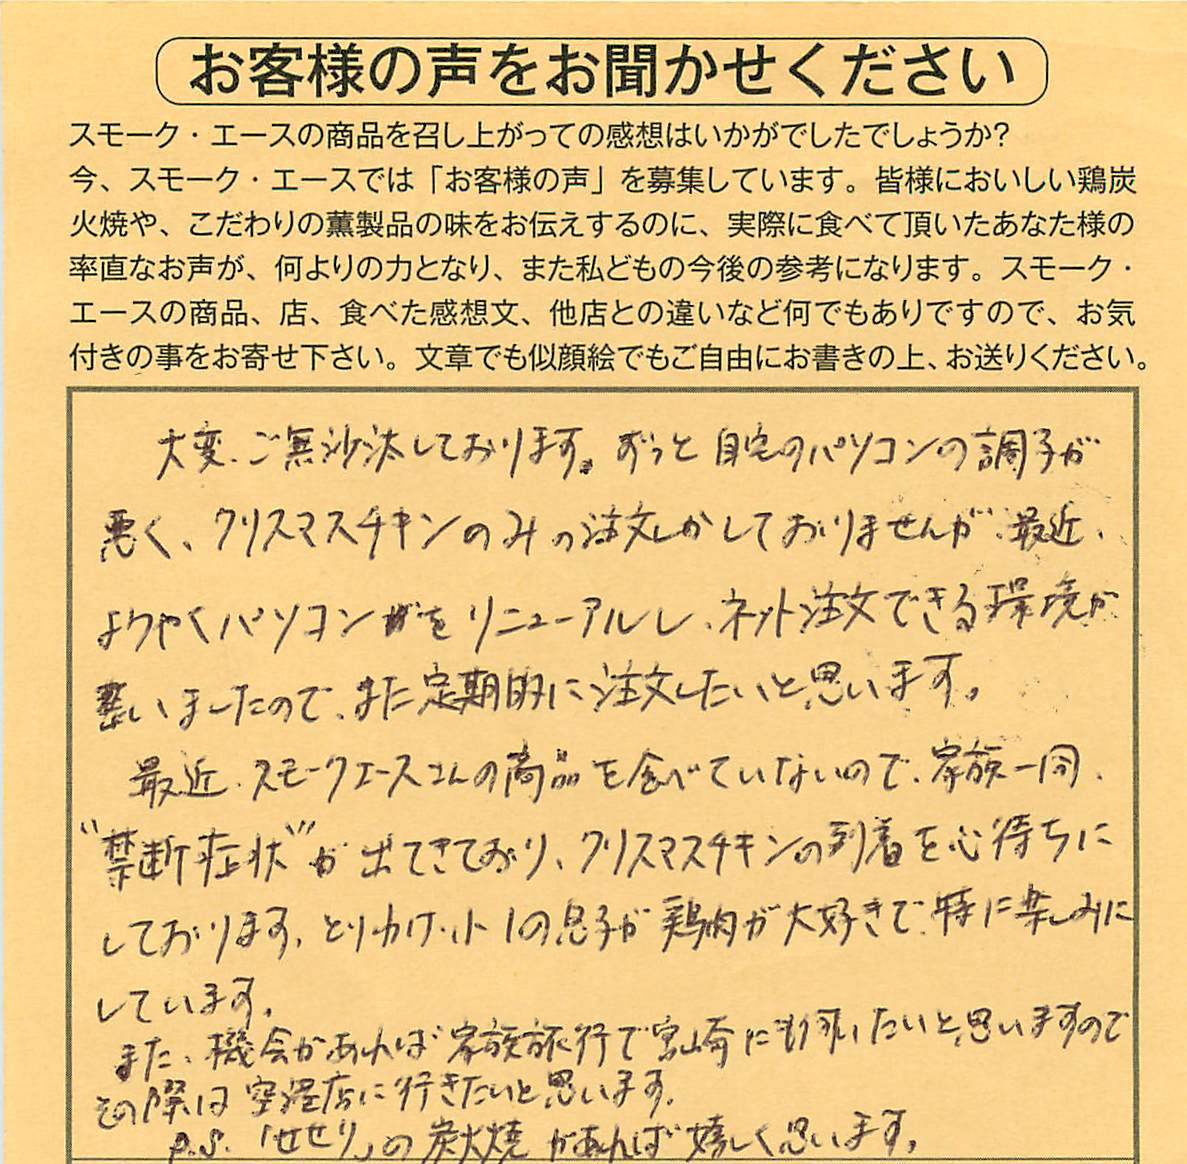 お客様の声をお聞かせください
スモーク・エースの商品を召し上がっての感想はいかがでしたでしょうか?
今、スモーク・エースでは「お客様の声」を募集しています。皆様においしい鶏炭
火焼や、こだわりの薫製品の味をお伝えするのに、実際に食べて頂いたあなた様の
率直なお声が、何よりの力となり、また私どもの今後の参考になります。スモーク・
エースの商品、店、食べた感想文、他店との違いなど何でもありですので、お気
付きの事をお寄せ下さい。文章でも似顔絵でもご自由にお書きの上、お送りください。
大変、ご無沙汰しております。ずっと自宅のパソコンの調子が
悪く、クリスマスチキンのみの注文しかしておりませんが、最近、
ようやくパソコンをリニューアルし、ネット注文できる環境が
整いましたので、また定期的に注文したいと思います。
最近、スモークエースさんの商品を食べていないので、家族一同、
"禁断症状"が出てきており、クリスマスチキンの到着を心待ちに
しております。とりわけ、小1の息子が鶏肉が大好きで、特に楽しみに
しています。
また、機会があれば家族旅行で宮崎にも行いたいと思いますので
その際は空港店に行きたいと思います。
P.S.「せせり」の炭火焼があれば嬉しく思います。